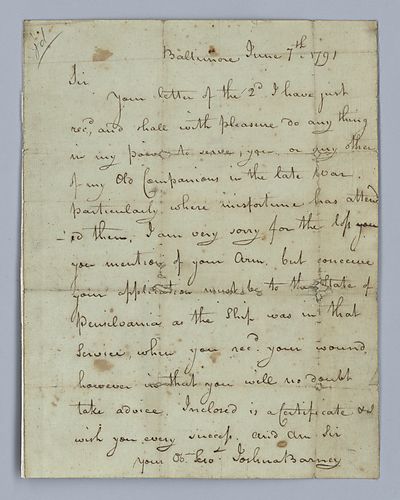 Baltimore June 7th 1791
Sir
Your letter of the 2d. I have just
recd, and shall with pleasure do any thing
in my power to serve, you, or any other
of my Old Companions in the late War,
particularly where misfortune has attend
-ed them, I am very sorry for the loss you
you mention of your Arm, but conceive
your application must be to the State of
Pensilvania as the Ship was in that
Service, when you recd. your wound,
however in that you will no doubt
take advice. Inclosed is a Certificate &
wish you every success, and am Sir
your Ob. Servt. Joshua Barney